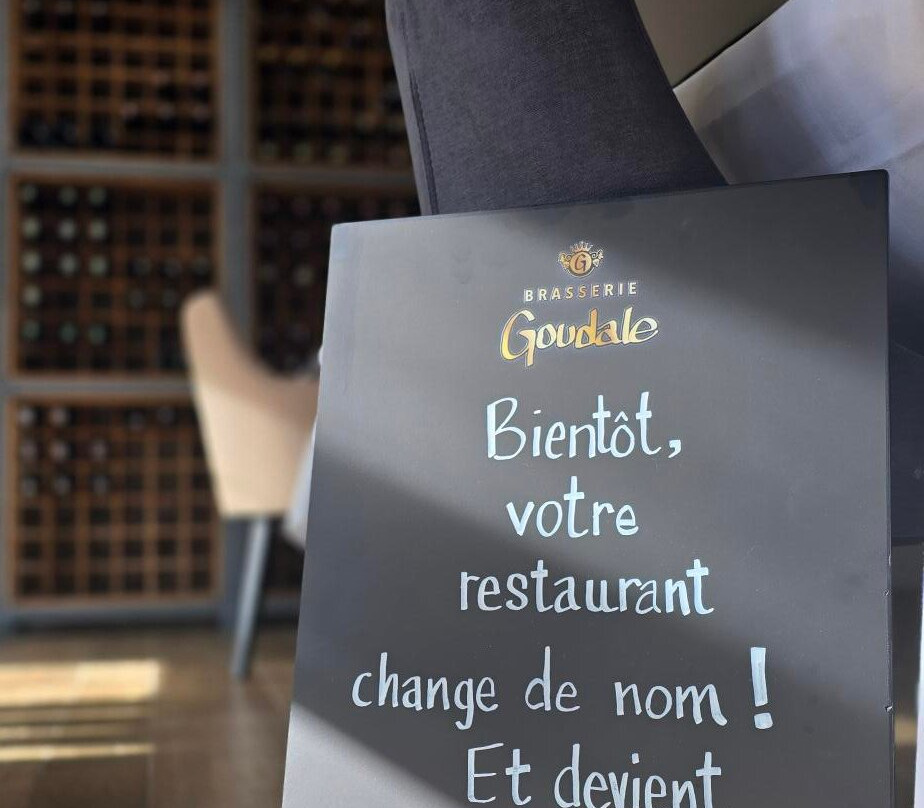 G
BRASSERIE
Goudale
Bientôt,
votre
restaurant
change de nom !
Et devient